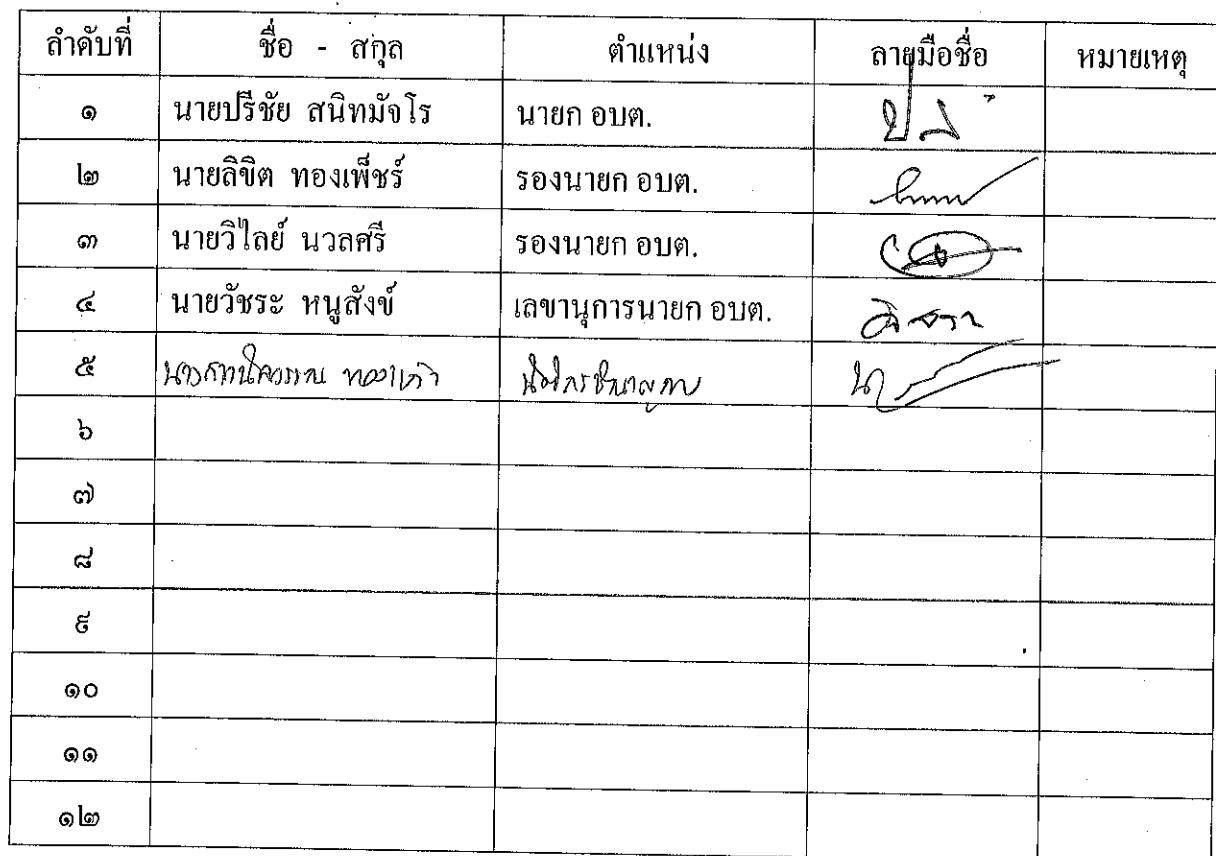 ลำดับที่ ชื่อ - สกุล ตำแหน่ง ลายมือชื่อ หมายเหตุ
๑ นายปรีชัย สนิทมัจโร นายก อบต.
๒ นายลิขิต ทองเพ็ชร์ รองนายก อบต.
๓ นายวิไลย์ นวลศรี รองนายก อบต.
๔ นายวัชระ หนูสังข์ เลขานุการนายก อบต.
๕
๖
๗
๘
๙
๑๐
๑๑
๑๒